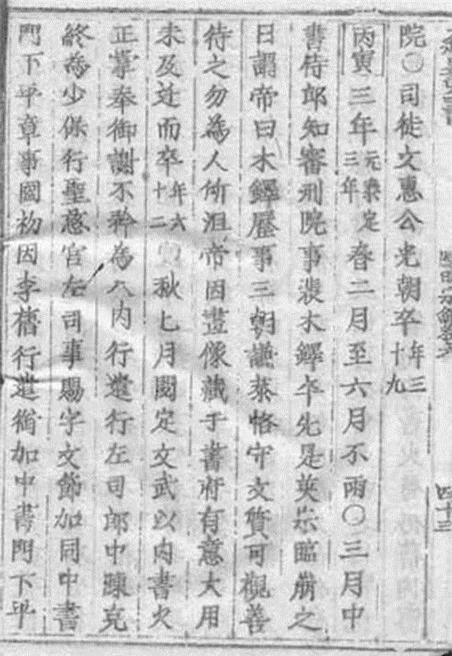 四十三
院〇司徒文惠公光朝卒年三十九
丙寅三年元泰定三年春二月至六月不雨〇三月中
書侍郎知審刑院事裴木鐸卒先是英宗臨崩之
日謂帝曰木鐸歷事三朝謙恭恪守文質可觀善
待之勿為人所沮帝因畫像藏于書府有意大用
未及迁而卒年六十二〇秋七月閱定文武以内書火
正掌奉御謝不矜為入内行遣行左司郎中陳克
終為少保行聖慈宮左司事賜字文節加同中書
門下平章事國初因李舊行遣銜加中書門下平